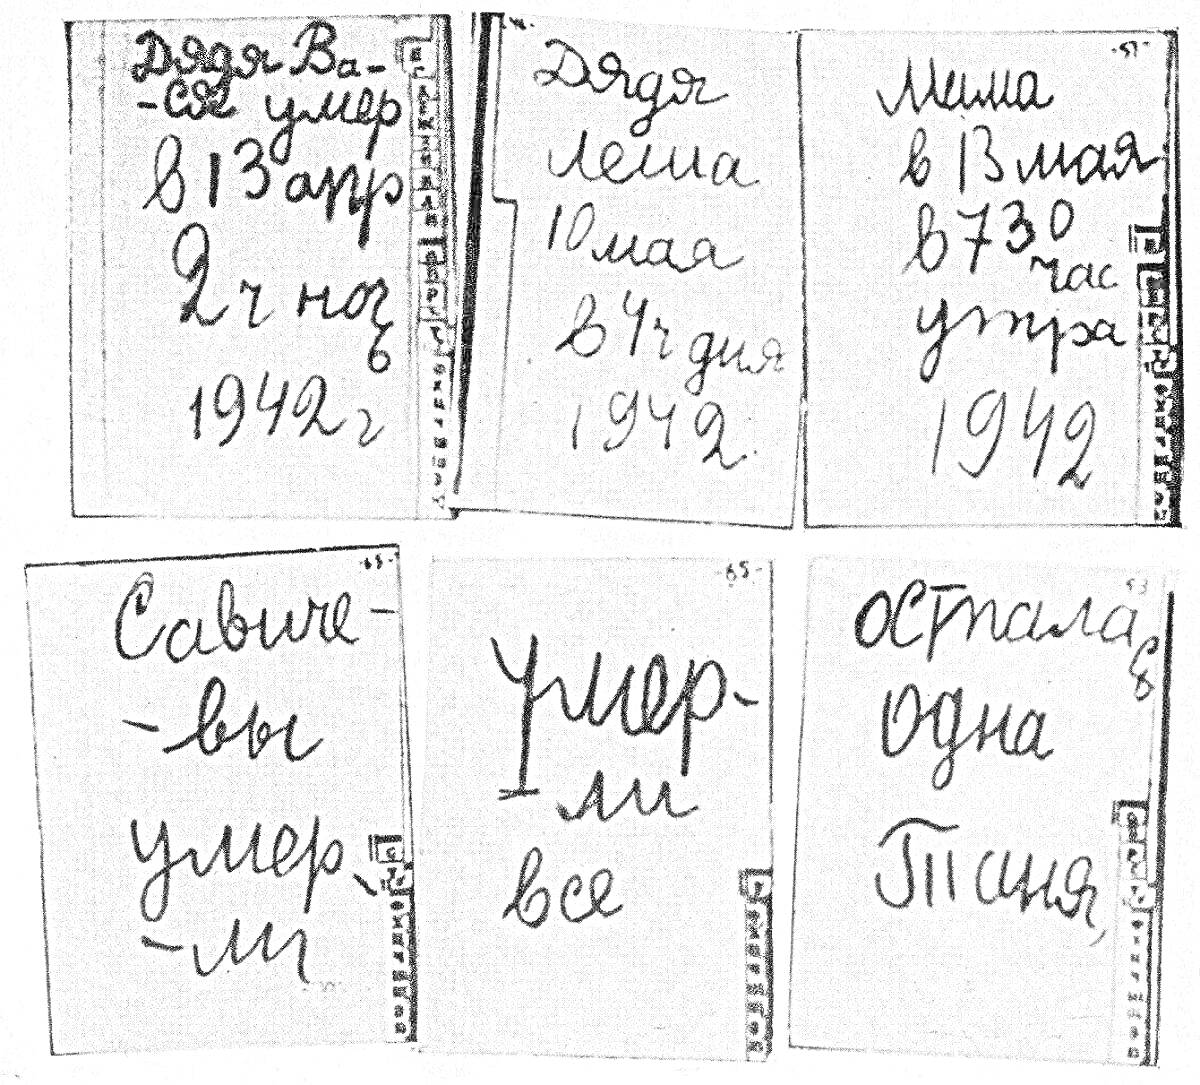 Дядя Ва-
-ся умер
в 13 апр
2 ч ноч
ь
1942 г
Дядя
Леша
10 мая
в 4 ч дня
1942
Мама
в 13 мая
в 730
час
утра
1942
Савиче-
-вы
умер
-ли
Умер-
ли
все
Осталa
сь
одна
Таня